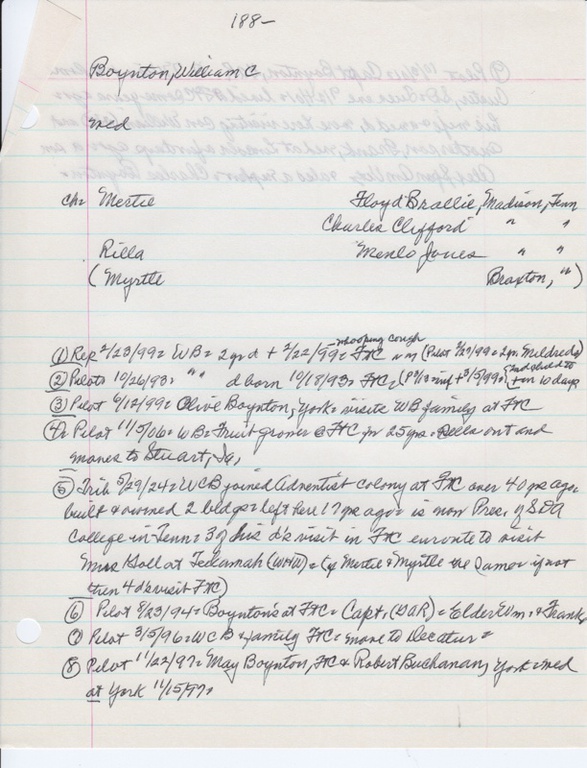 188-
Boynton, William C
med
ch: Mertie Floyd Brallie, Madison, Tenn
Charles Clifford " "
Rilla Menlo Jones " "
(Myrtle Braxton, ")
whooping cough
① Rep 2/23/99= WB= 2 yr d + 2/22/99= FtC (Pilot 3/2/99= 2 yr. Mildred)
② Pilot= 10/26/93= " " d born 10/18/93= FtC= 3/5/99= 10 days
③ Pilot 6/12/99= Olive Boynton, York= visits WB family at FtC
④= Pilot 11/5/06= WB= Fruit grower @ FtC for 25 yrs= Sells out and
moves to Stuart, Ia,
⑤ Trib 5/29/24= WCB joined Adventist colony at FtC over 40 yrs ago=
built & owned 2 bldgs= left here 17 yrs ago= is now Pres. of SDA
College in Tenn= 3 of his d's visit in FtC enroute to visit
Mrs Goll at Tekamah (WHW)= (if Mertie & Myrtle the same= if not
then 4 d's visit FtC)
⑥ Pilot 8/23/94= Boynton's at FtC= Capt, (GAR)= Elder Wm,= & Frank,
⑦ Pilot 3/5/96= WCB & family FtC= move to Decatur=
⑧ Pilot 11/22/97= May Boynton, FtC & Robert Buchanan, York= med
at York 11/15/97=